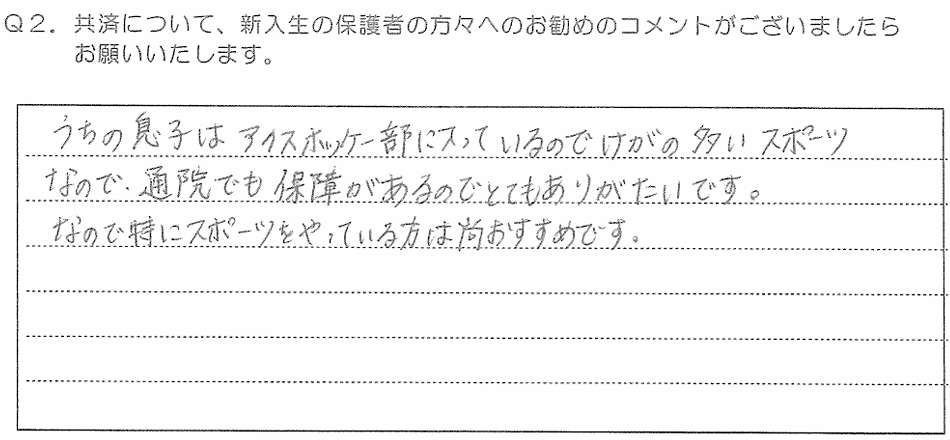 Q2. 共済について、新入生の保護者の方々へのお勧めのコメントがございましたら
お願いいたします。
うちの息子はアイスホッケー部に入っているのでけがの多いスポーツ
なので、通院でも保障があるのでとてもありがたいです。
なので特にスポーツをやっている方は尚おすすめです。